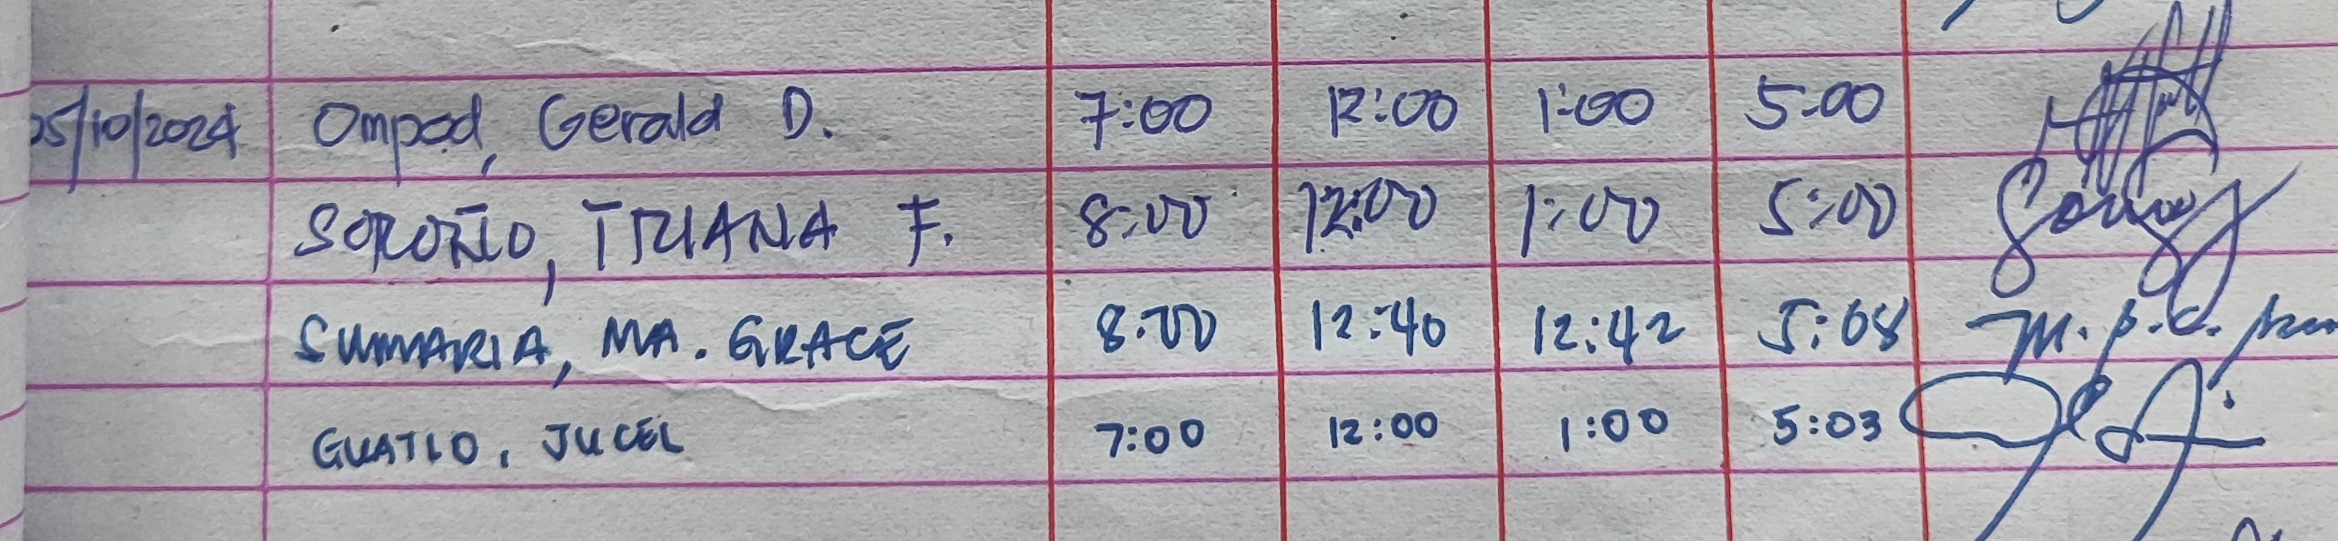 25/10/2024 Ompod, Gerald D. 7:00 12:00 1:00 5:00
SOROÑO, TRIANA F. 8:00 12:00 1:00 5:00
SUMARIA, MA. GRACE 8:00 12:40 12:42 5:08
GUATLO, JUCEL 7:00 12:00 1:00 5:03